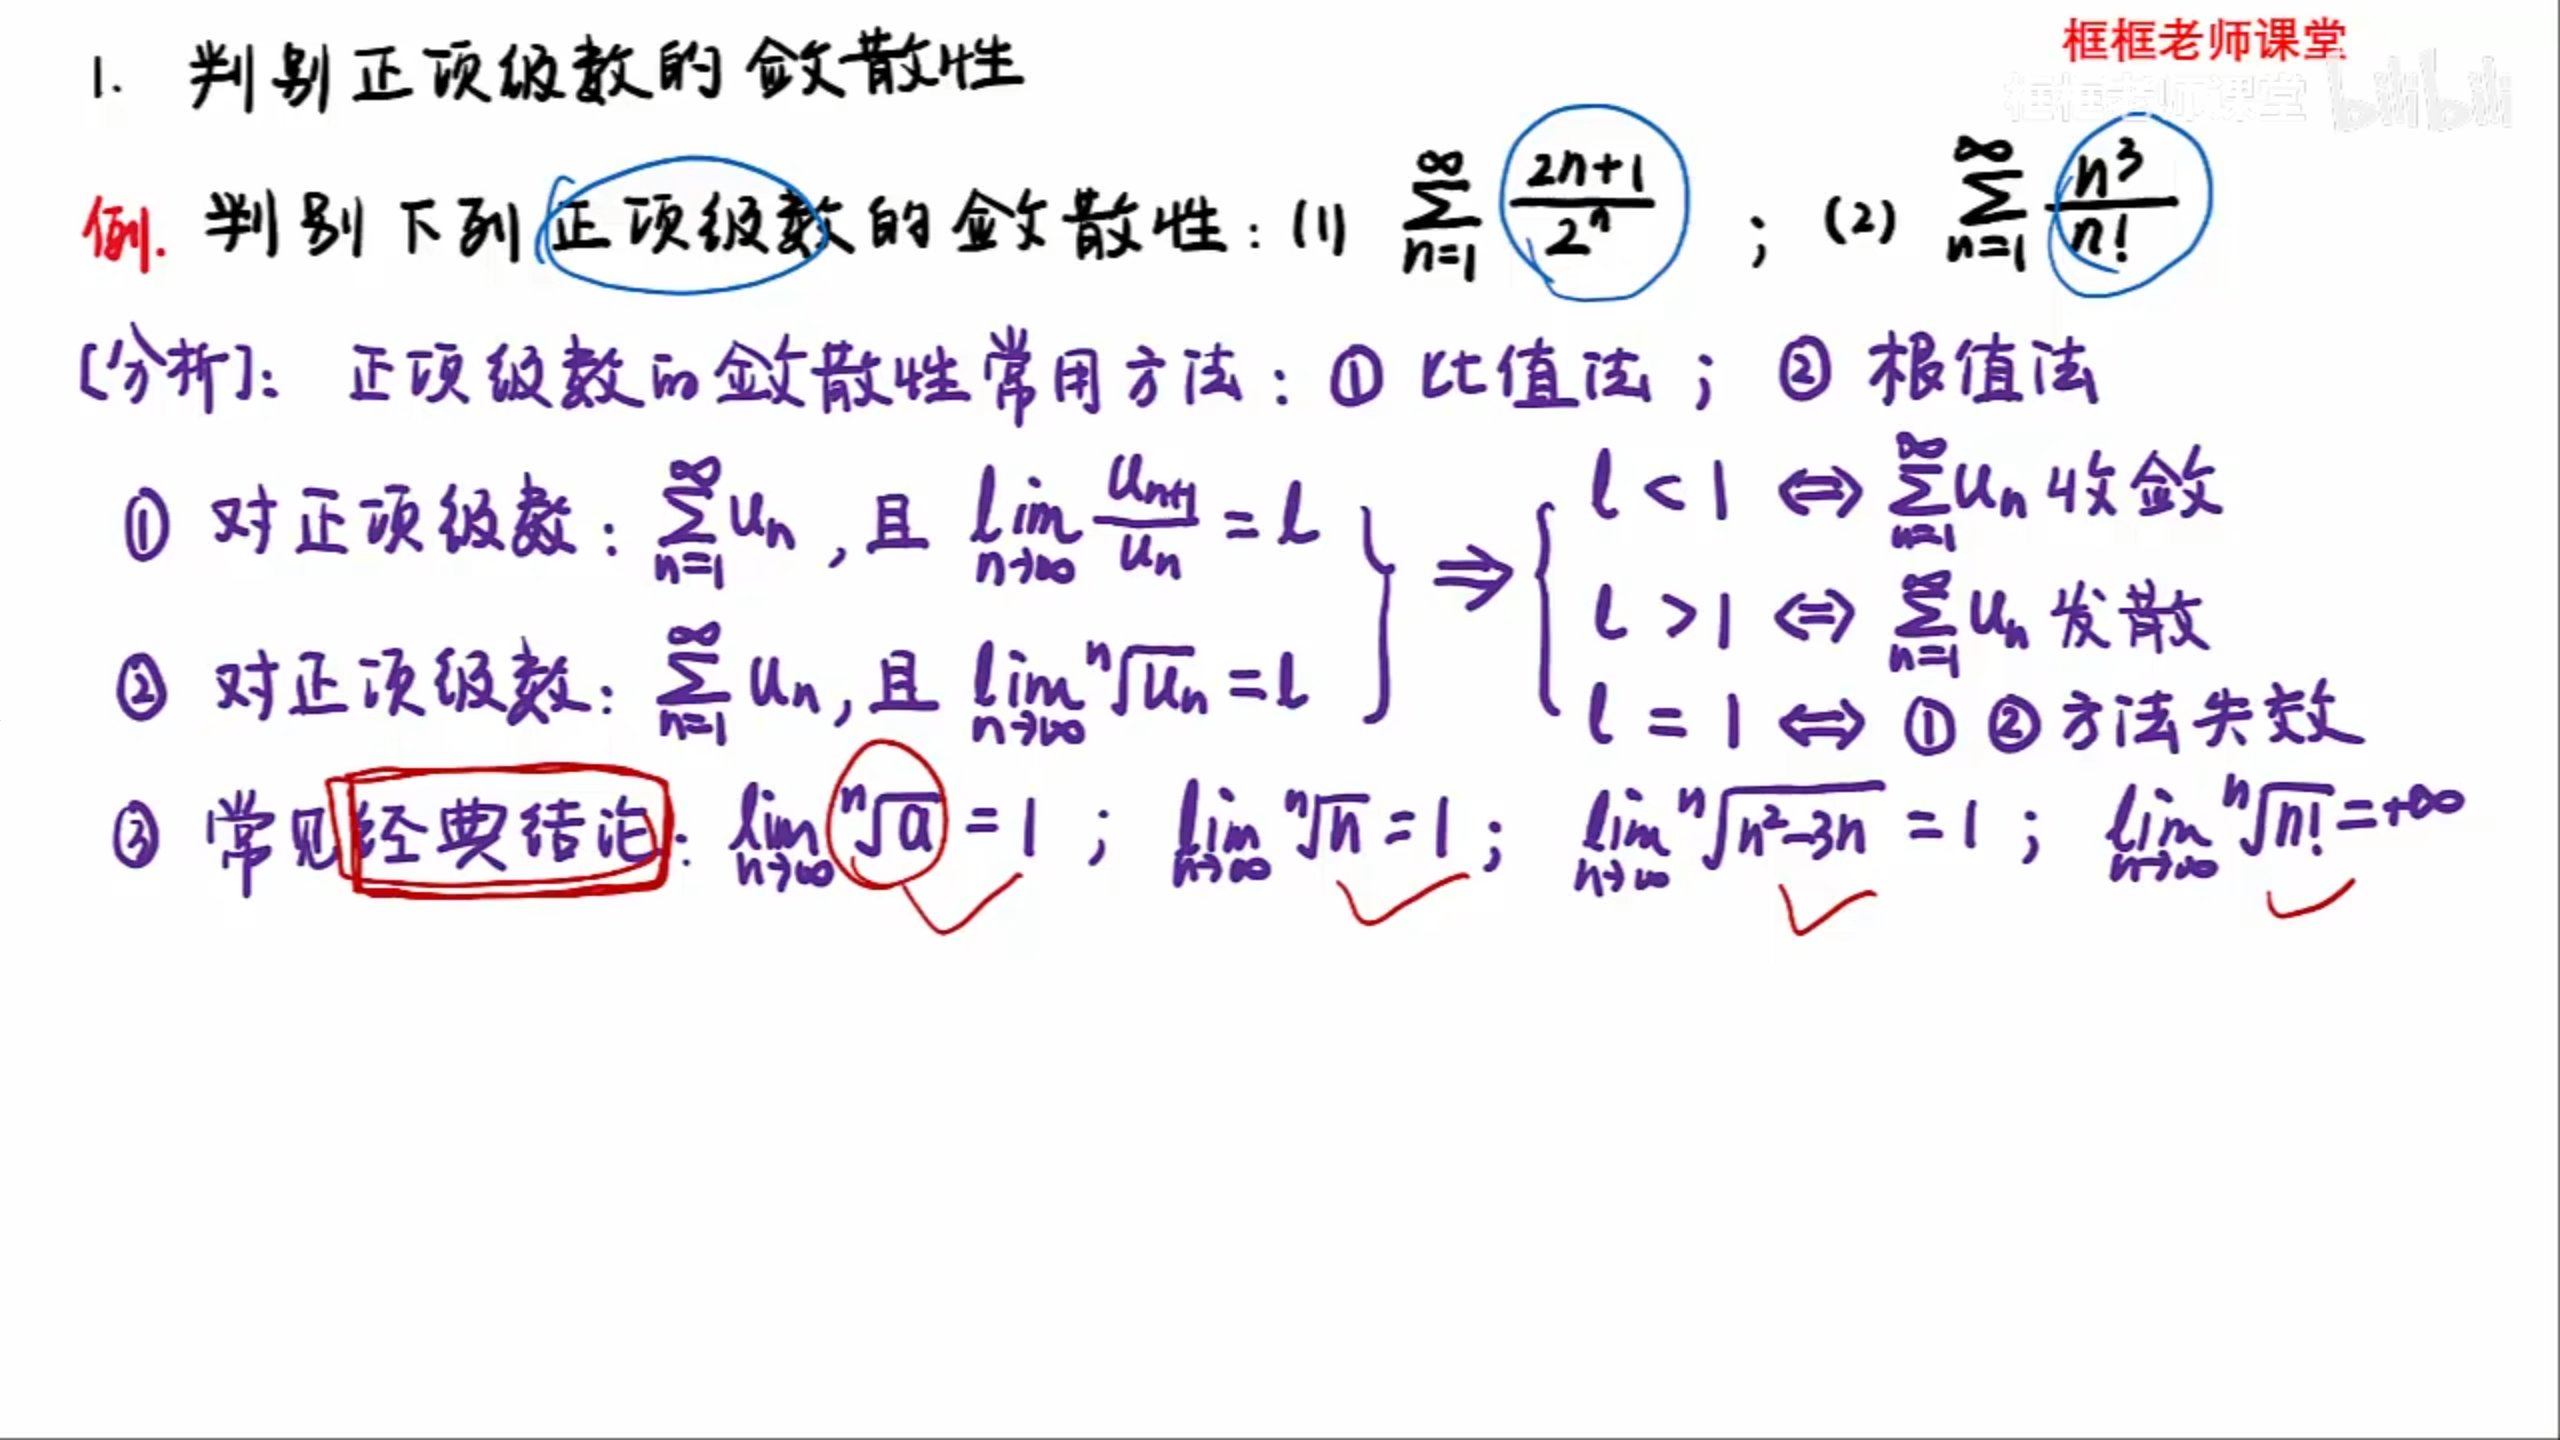 框框老师课堂
框框老师课堂 bilibili
1. 判别正项级数的敛散性
例. 判别下列正项级数的敛散性: (1) ∑_{n=1}^{∞} (2n+1)/2^n ; (2) ∑_{n=1}^{∞} n^3/n!
[分析]: 正项级数的敛散性常用方法: ① 比值法 ; ② 根值法
① 对正项级数: ∑_{n=1}^{∞} u_n , 且 lim_{n→∞} u_{n+1}/u_n = l
② 对正项级数: ∑_{n=1}^{∞} u_n , 且 lim_{n→∞} ⁿ√u_n = l
} ⇒ { l < 1 ⇔ ∑_{n=1}^{∞} u_n 收敛
l > 1 ⇔ ∑_{n=1}^{∞} u_n 发散
l = 1 ⇔ ① ② 方法失效
③ 常见经典结论: lim_{n→∞} ⁿ√a = 1 ; lim_{n→∞} ⁿ√n = 1 ; lim_{n→∞} ⁿ√(n²-3n) = 1 ; lim_{n→∞} ⁿ√(n!) = +∞